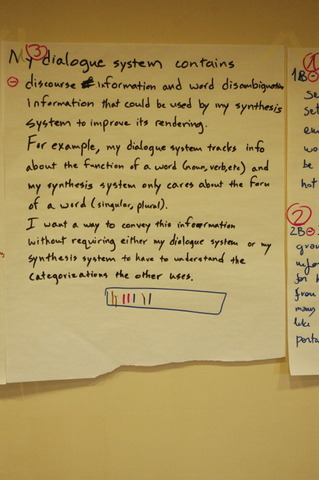 ③
My dialogue system contains
discourse information and word disambiguation
information that could be used by my synthesis
system to improve its rendering.
For example, my dialogue system tracks info
about the function of a word (noun, verb, etc) and
my synthesis system only cares about the form
of a word (singular, plural).
I want a way to convey this information
without requiring either my dialogue system or my
synthesis system to have to understand the
categorizations the other uses.
①
1B
Se
set
wo
be
hot
②
2B
grou
infor
for
from
many
like
porta